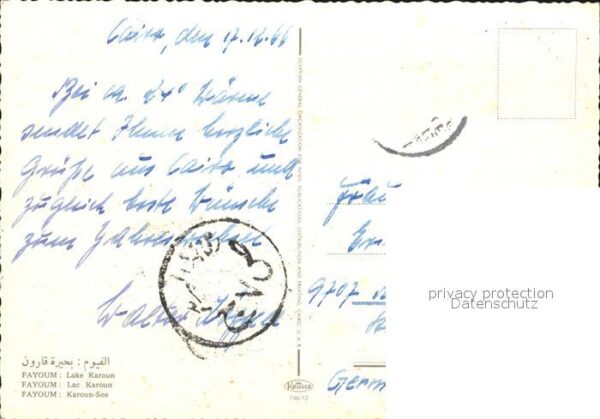 Cairo, den 17.12.66
Bei ca. 24° Wärme
sendet Ihnen herzliche
Grüße aus Cairo und
zugleich beste Wünsche
zum Jahreswechsel
Walter
الفيوم : بحيرة قارون
FAYOUM : Lake Karoun
FAYOUM : Lac Karoun
FAYOUM : Karoun-See
EGYPTIAN GENERAL ORGANIZATION FOR NEWS, PUBLICATION, DISTRIBUTION AND PRINTING CAIRO, U.A.R.
KRÜGER
746/12
CAIRO
Frau
9707
Germ
privacy protection
Datenschutz